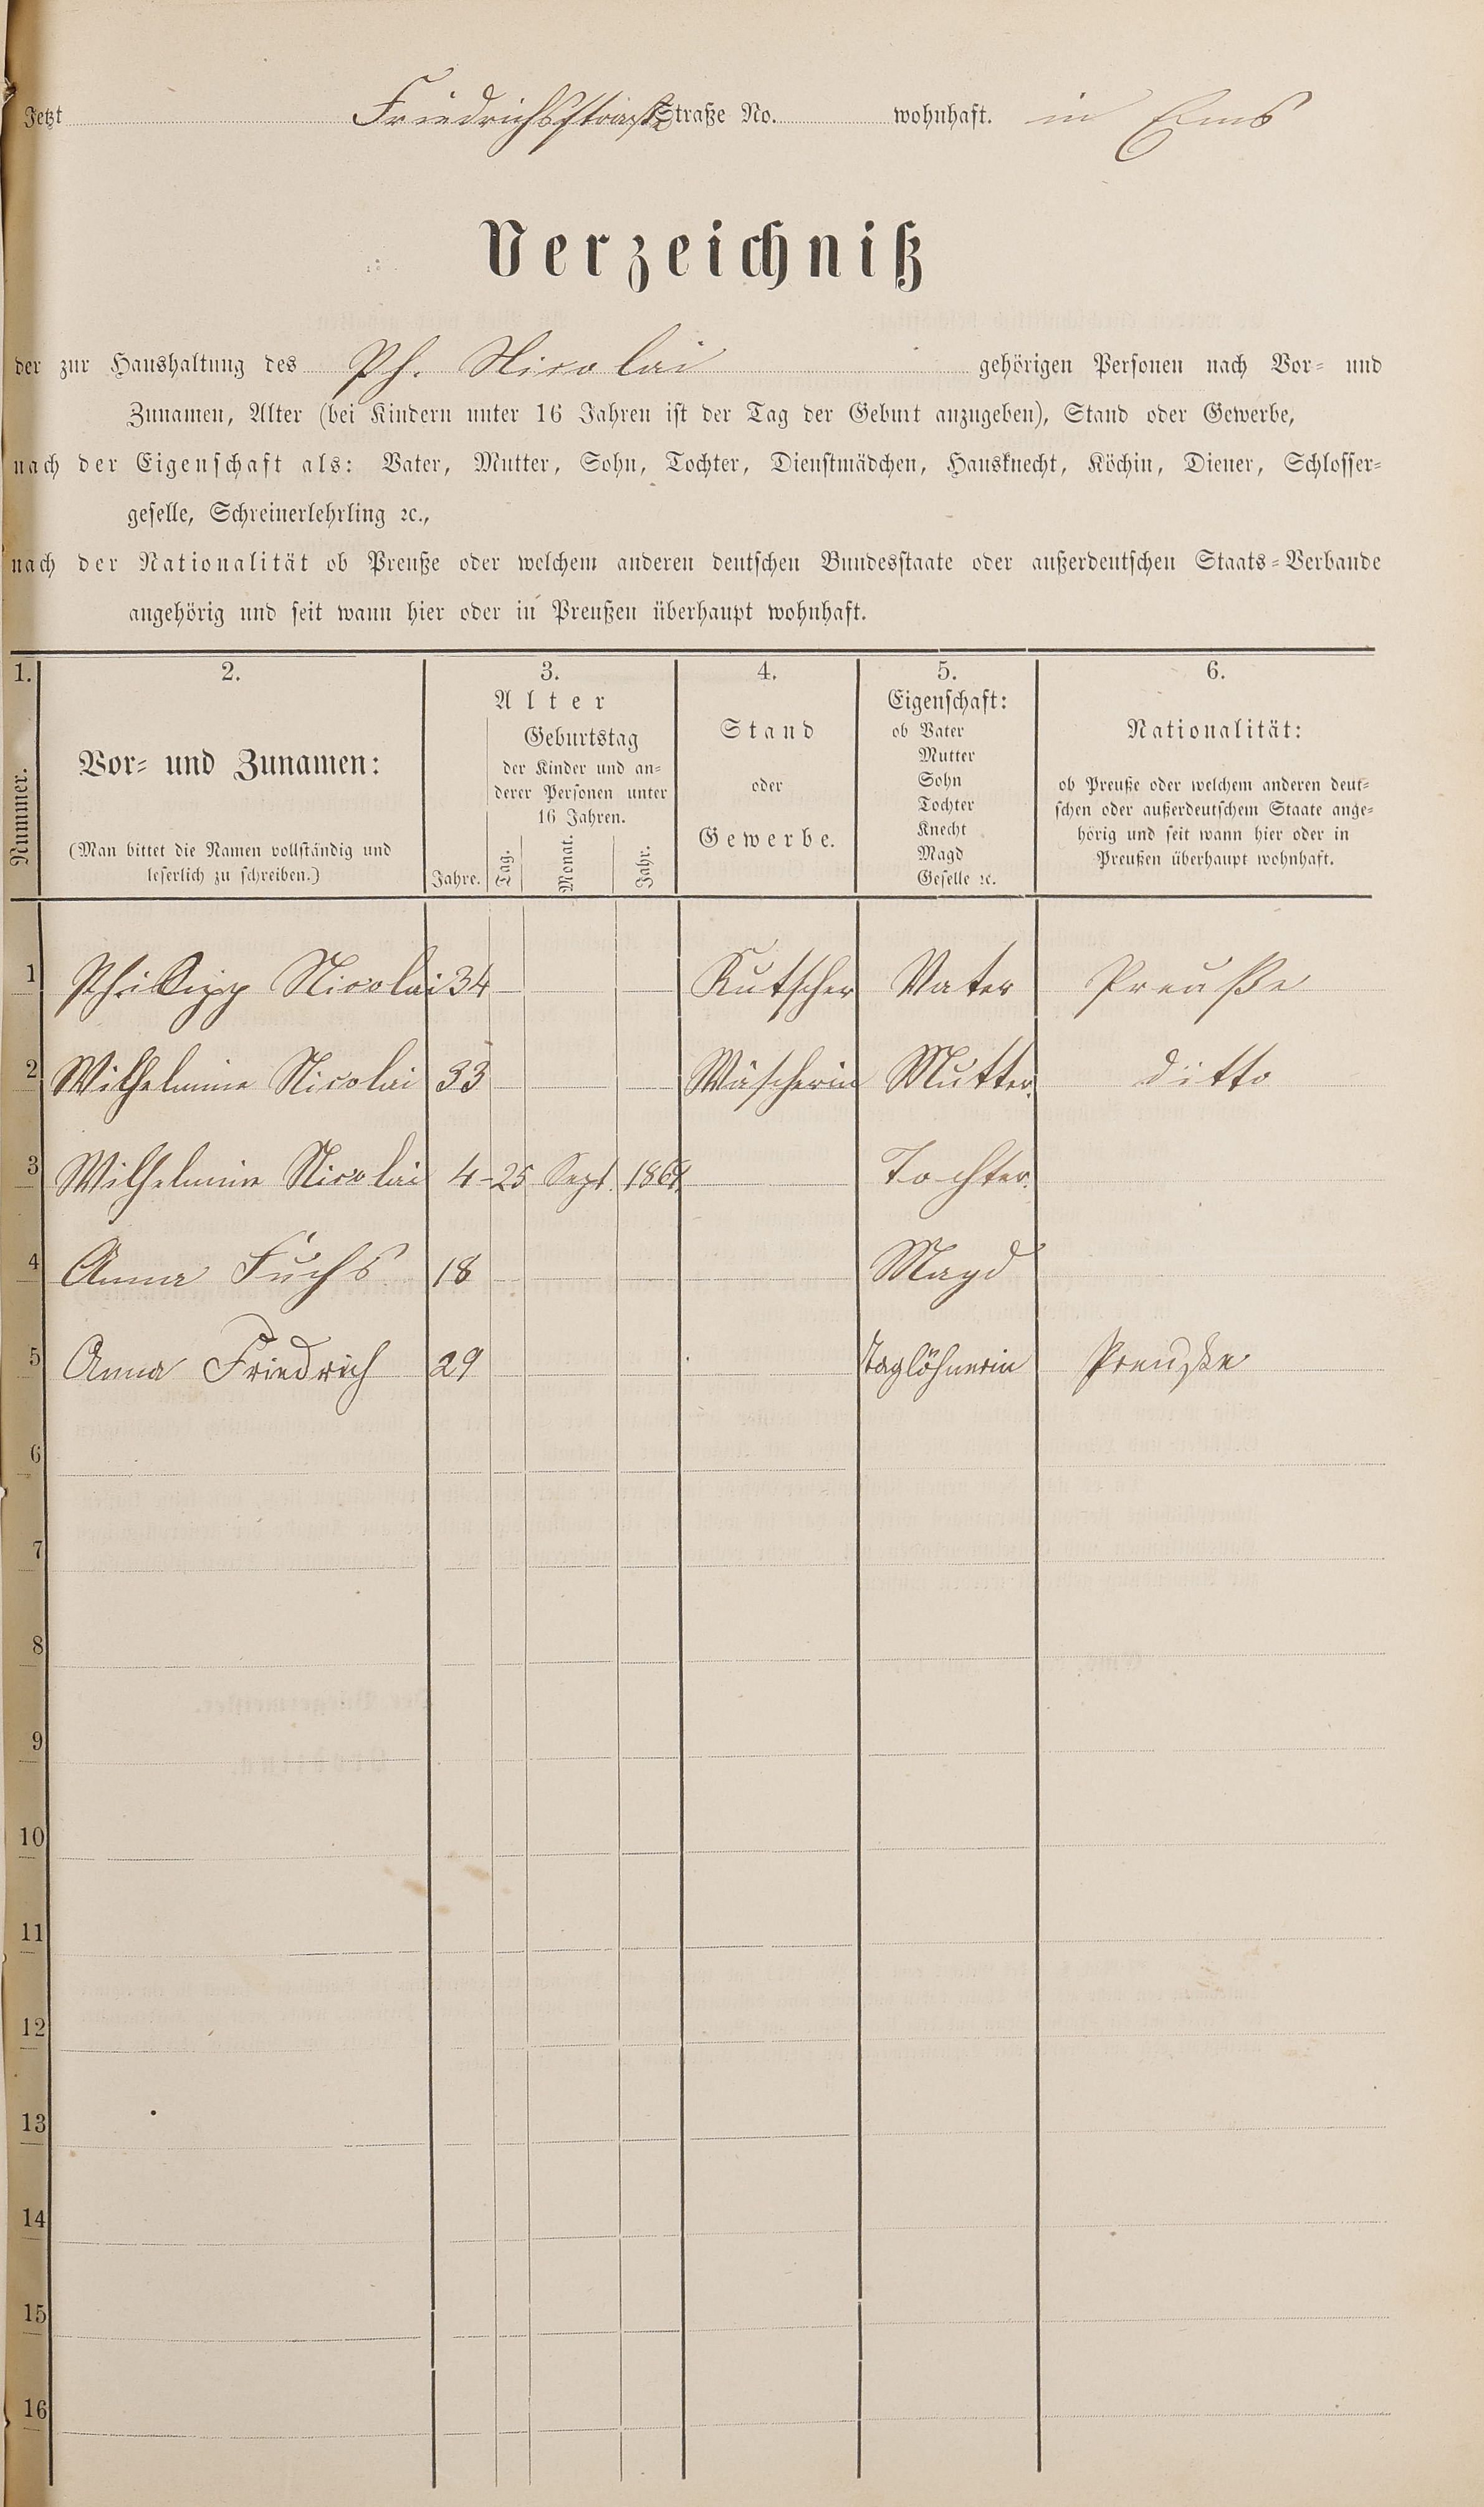 Jetzt Friedrichsstraße Straße No. wohnhaft. in Ems
Verzeichniß
der zur Haushaltung des Ph. Nicolai gehörigen Personen nach Vor- und
Zunamen, Alter (bei Kindern unter 16 Jahren ist der Tag der Geburt anzugeben), Stand oder Gewerbe,
nach der Eigenschaft als: Vater, Mutter, Sohn, Tochter, Dienstmädchen, Hausknecht, Köchin, Diener, Schlosser-
geselle, Schreinerlehrling ꝛc.,
nach der Nationalität ob Preuße oder welchem anderen deutschen Bundesstaate oder außerdeutschen Staats-Verbande
angehörig und seit wann hier oder in Preußen überhaupt wohnhaft.
1.
Nummer.
2.
Vor- und Zunamen:
(Man bittet die Namen vollständig und
leserlich zu schreiben.)
3.
Alter
Geburtstag
der Kinder und an-
derer Personen unter
16 Jahren.
Jahre. Tag. Monat. Jahr.
4.
Stand
oder
Gewerbe.
5.
Eigenschaft:
ob Vater
Mutter
Sohn
Tochter
Knecht
Magd
Geselle ꝛc.
6.
Nationalität:
ob Preuße oder welchem anderen deut-
schen oder außerdeutschem Staate ange-
hörig und seit wann hier oder in
Preußen überhaupt wohnhaft.
1 Philipp Nicolai 34 Kutscher Vater Preuße
2 Wilhelmine Nicolai 33 Wäscherin Mutter ditto
3 Wilhelmine Nicolai 4 - 25 Sept. Tochter.
4 Anna Fuchs 18 Magd
5 Anna Friedrich 29 Taglöhnerin Preuße
6
7
8
9
10
11
12
13
14
15
16